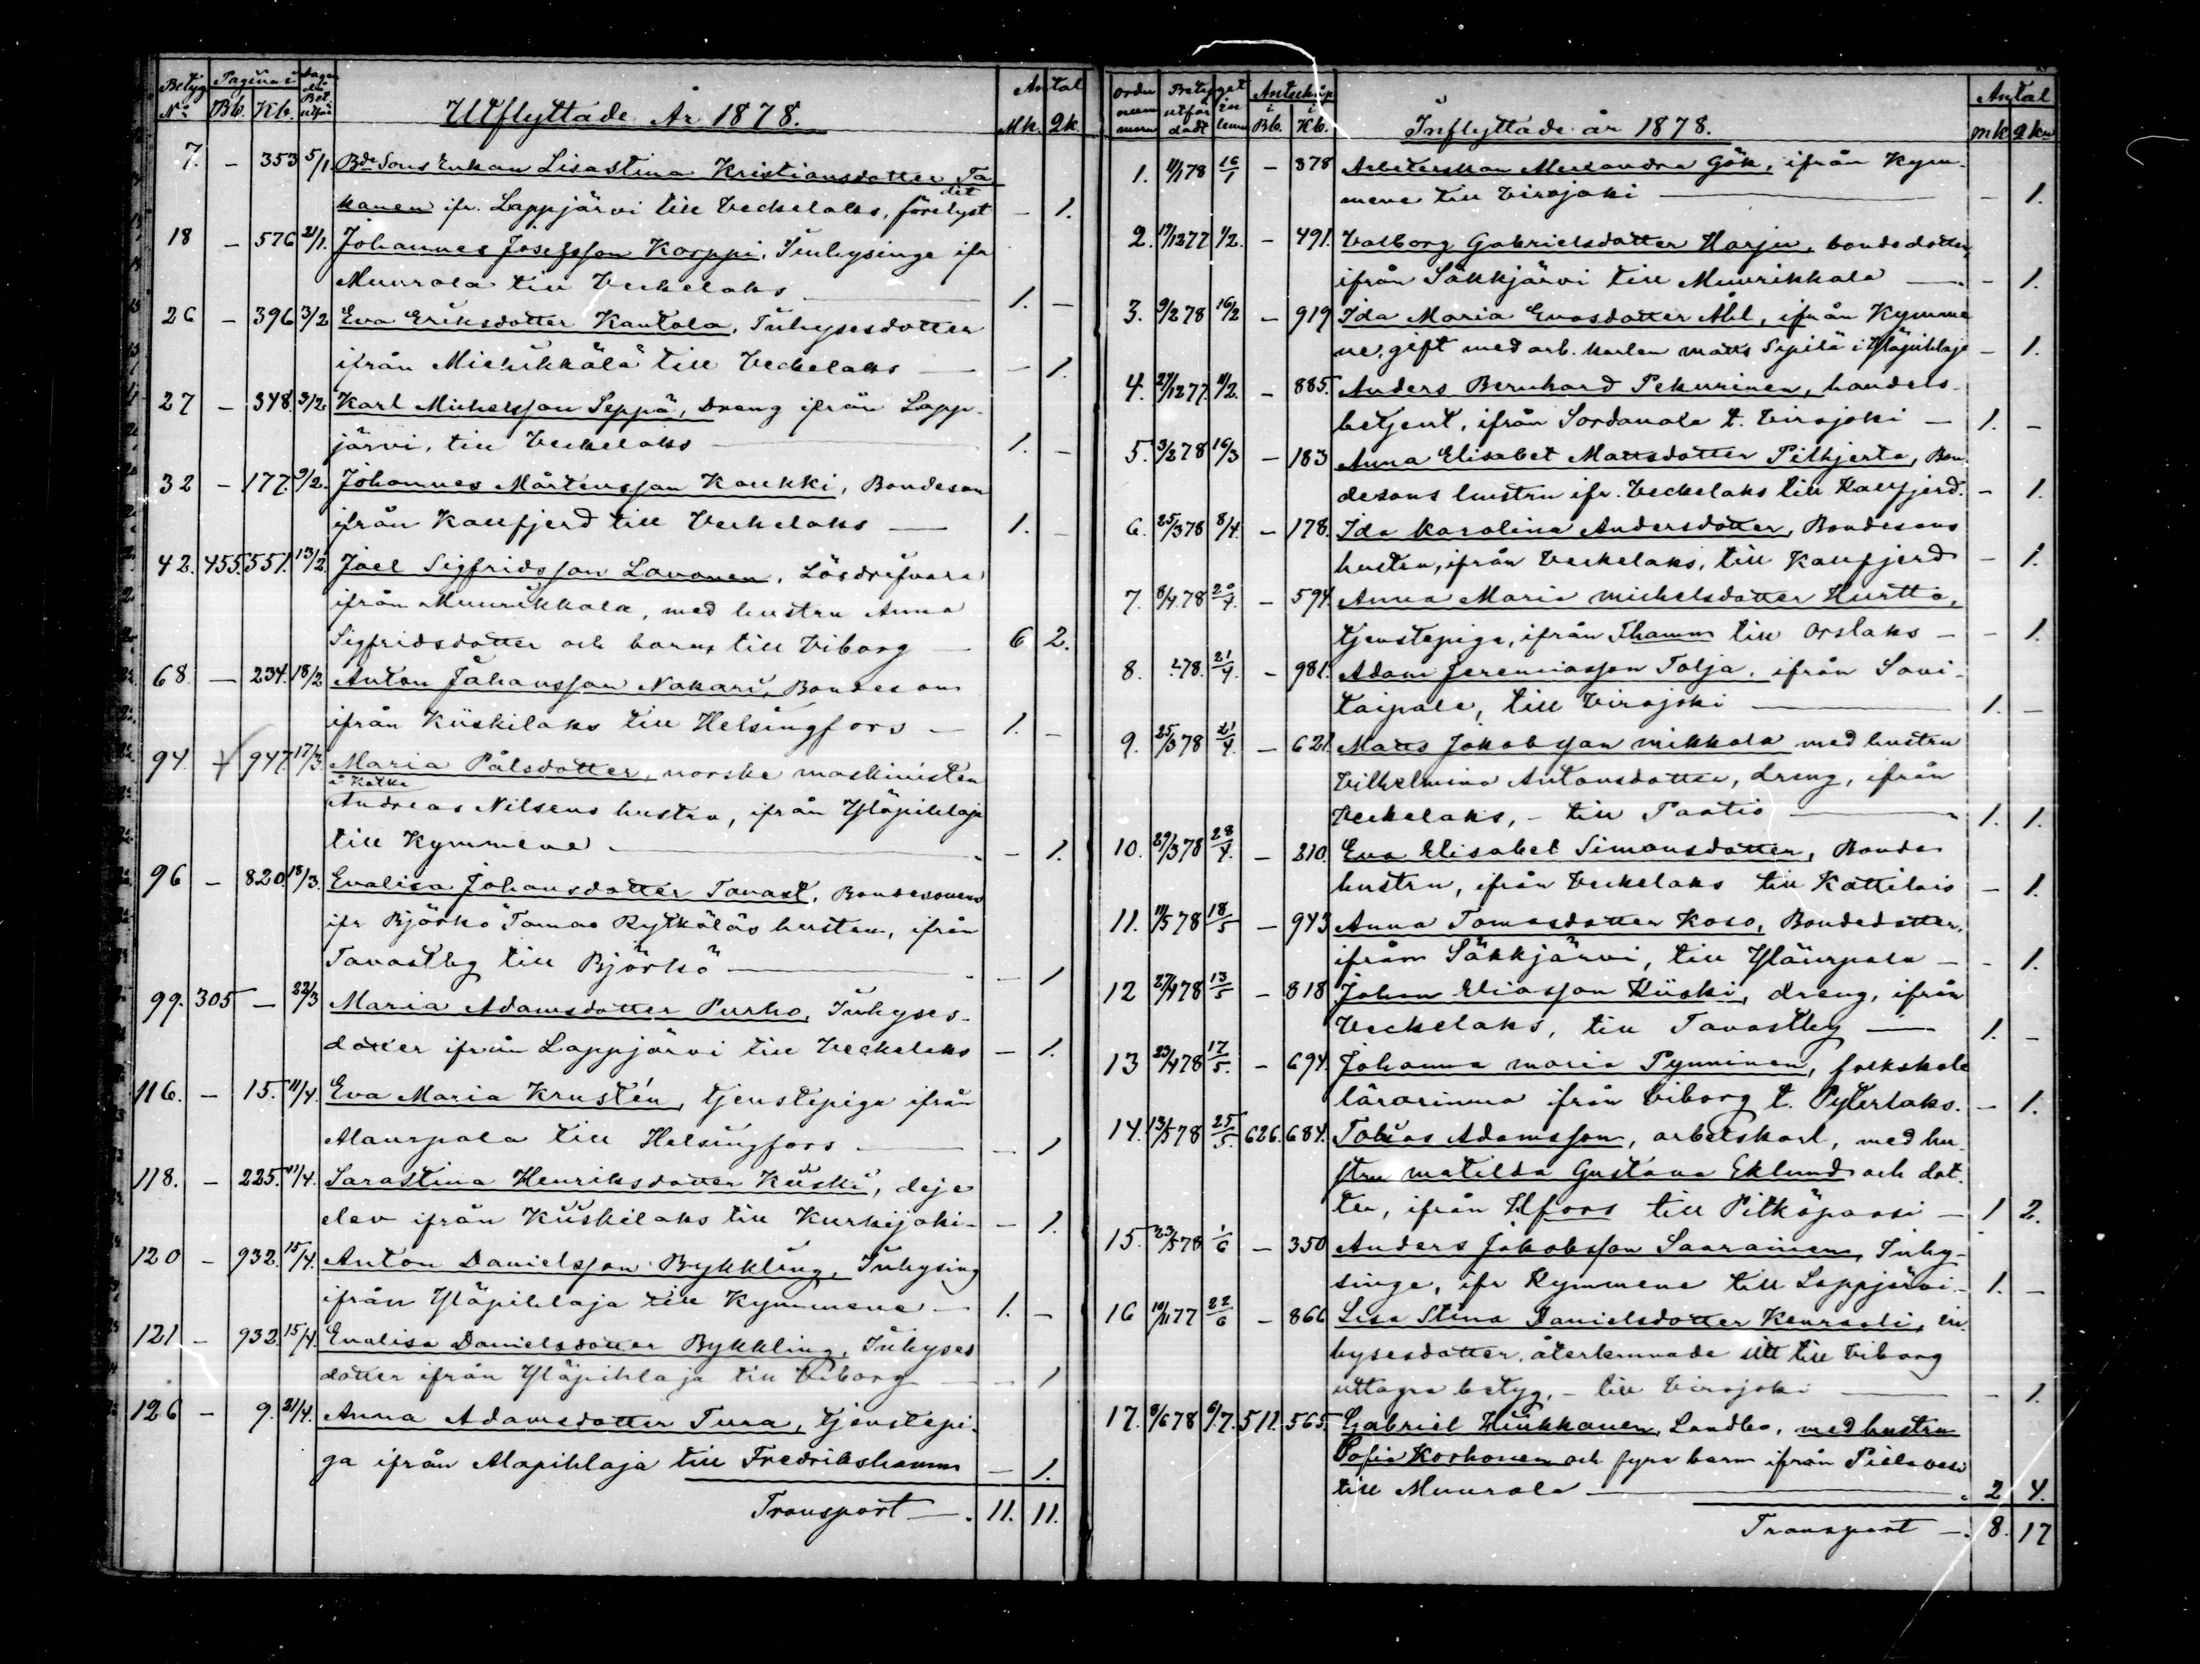 Betyg Pagina i Dagen då Bet. utfär Antal
No Bb. Kb. Utflyttade År 1878. Mk. Qk.
7. – 353 5/1 Bde Sons Enkan Lisastina Kristiansdotter Ta
kanen ifr. Lappjärvi till Veckelaks, förelyst dit – 1.
18 – 576 21/1. Johannes Josefsson Korppi, Inhysinge ifr
Muurola till Veckelaks 1. –
26 – 396 3/2 Eva Eriksdotter Kantola, Inhysesdotter
ifrån Miehikkälä till Veckelaks – 1.
27 – 348. 3/2 Karl Michelsson Seppä, Dreng ifrån Lapp-
järvi, till Veckelaks 1. –
32 – 177. 9/2. Johannes Mårtensson Kaukki, Bondeson
ifrån Kaufjerd till Veckelaks 1. –
42. 455. 551. 13/2. Joel Sigfridsson Lavonen, Lösdrifvare
ifrån Muurikkala, med hustru Anna
Sigfridsdotter och barn, till Viborg 6 2.
68. – 234. 18/2 Anton Johansson Nakari, Bondeson
ifrån Kiiskilaks till Helsingfors – 1. –
94. 947. 17/3. Maria Pålsdotter, norske maskinisten
i Kotka
Andreas Nilsens hustru, ifrån Yläpihlaja
till Kymmene – 1.
96 – 820. 18/3. Evalisa Johansdotter Tavast, Bondesonens
ifr Björkö Tomas Rytköläs hustru, ifrån
Tavastby till Björkö – 1
99. 305 – 22/3 Maria Adamsdotter Purho, Inhyses-
dotter ifrån Lappjärvi till Veckelaks – 1.
116. – 15. 11/4. Eva Maria Krustén, tjenstepiga ifrån
Alaurpala till Helsingfors – 1
118. – 225. 11/4. Sarastina Henriksdotter Kiiski, deje
elev ifrån Kiiskilaks till Kurkijoki – 1.
120 – 932. 15/4. Anton Danielsson Bykkling, Inhysing
ifrån Yläpihlaja till Kymmene – 1. –
121 – 932. 15/4. Evalisa Danielsdotter Bykkling, Inhyses
dotter ifrån Yläpihlaja till Viborg – 1
126 – 9. 21/4. Anna Adamsdotter Tura, tjenstepi-
ga ifrån Alapihlaja till Fredrikshamn – 1.
Transport – 11. 11.
Ordn nummer Betyget utfärdadt in lemn Anteckn i Antal
Bb. i Kb. Inflyttade år 1878. mk qkn
1. 11/1 78 16/1 – 378 Arbeterskan Alexandra Gök, ifrån Kym-
mene till Virojoki – 1.
2. 19/12 77 1/2. – 491. Valborg Gabrielsdotter Harju, bondedotter,
ifrån Säkkjärvi till Muurikkala – 1.
3. 9/2 78 16/2 – 919 Ida Maria Enosdotter Åhl, ifrån Kymme
ne, gift med arb. karlen Matts Sepilä i Yläpihlaja – 1.
4. 27/12 77. 11/2. – 885. Anders Bernhard Pekurinen, handels-
betjent, ifrån Sordavala t. Virojoki – 1. –
5. 3/2 78 16/3 – 183 Anna Elisabet Mattsdotter Pitkjerta, Bon
desons hustru ifr. Veckelaks till Kaufjerd. – 1.
6. 25/3 78 8/4. – 178. Ida Karolina Andersdotter, Bondesons
hustru, ifrån Veckelaks, till Kaufjerd – 1.
7. 8/4. 78 20/4. – 594. Anna Maria Michelsdotter Hurtta,
tjenstepiga, ifrån Fhamn till Orslaks – – 1.
8. 78. 21/4. – 981. Adam Jeremiasson Tolja, ifrån Savi-
taipale, till Virojoki 1. –
9. 25/3 78 21/4. – 621. Matts Jakobsson Mikkola med hustru
Vilhelmina Antonsdotter, dreng, ifrån
Veckelaks, – till Paatio 1. 1.
10. 29/3 78 28/4. – 210. Eva Elisabet Simonsdotter, Bonde
hustru, ifrån Veckelaks till Kattilais – 1.
11. 11/5 78 18/5 – 943 Anna Tomasdotter Koso, Bondedotter,
ifrån Säkkjärvi, till Yläurpala – – 1.
12 27/4 78 13/5 – 818 Johan Eliasson Kiiski, dreng, ifrån
Veckelaks, till Tavastby 1. –
13 23/4 78 17/5. – 694. Johanna Maria Pynninen, folkskole
lärarinna ifrån Viborg t. Pyterlaks. – 1.
14. 13/5 78 25/5. 626. 684. Tobias Adamsson, arbetskarl, med hu-
stru Matilda Gustava Eklund och dot-
ter, ifrån Hfors till Pitkäpaasi 1 2.
15. 23/5 78 1/6 – 350 Anders Jakobsson Saarainen, Inhy-
singe, ifr Kymmene till Lappjärvi – 1. –
16 10/11 77 22/6 – 866 Lisa Stina Danielsdotter Keuraali, in-
hysesdotter, återlemnade sitt till Viborg
uttagna betyg, – till Virojoki – 1.
17. 8/6 78 6/7. 511. 565. Gabriel Huikkanen, Landbo, med hustru
Sofia Korhonen och fyra barn ifrån Pielavesi
till Muurola 2 4.
Transport – 8. 17